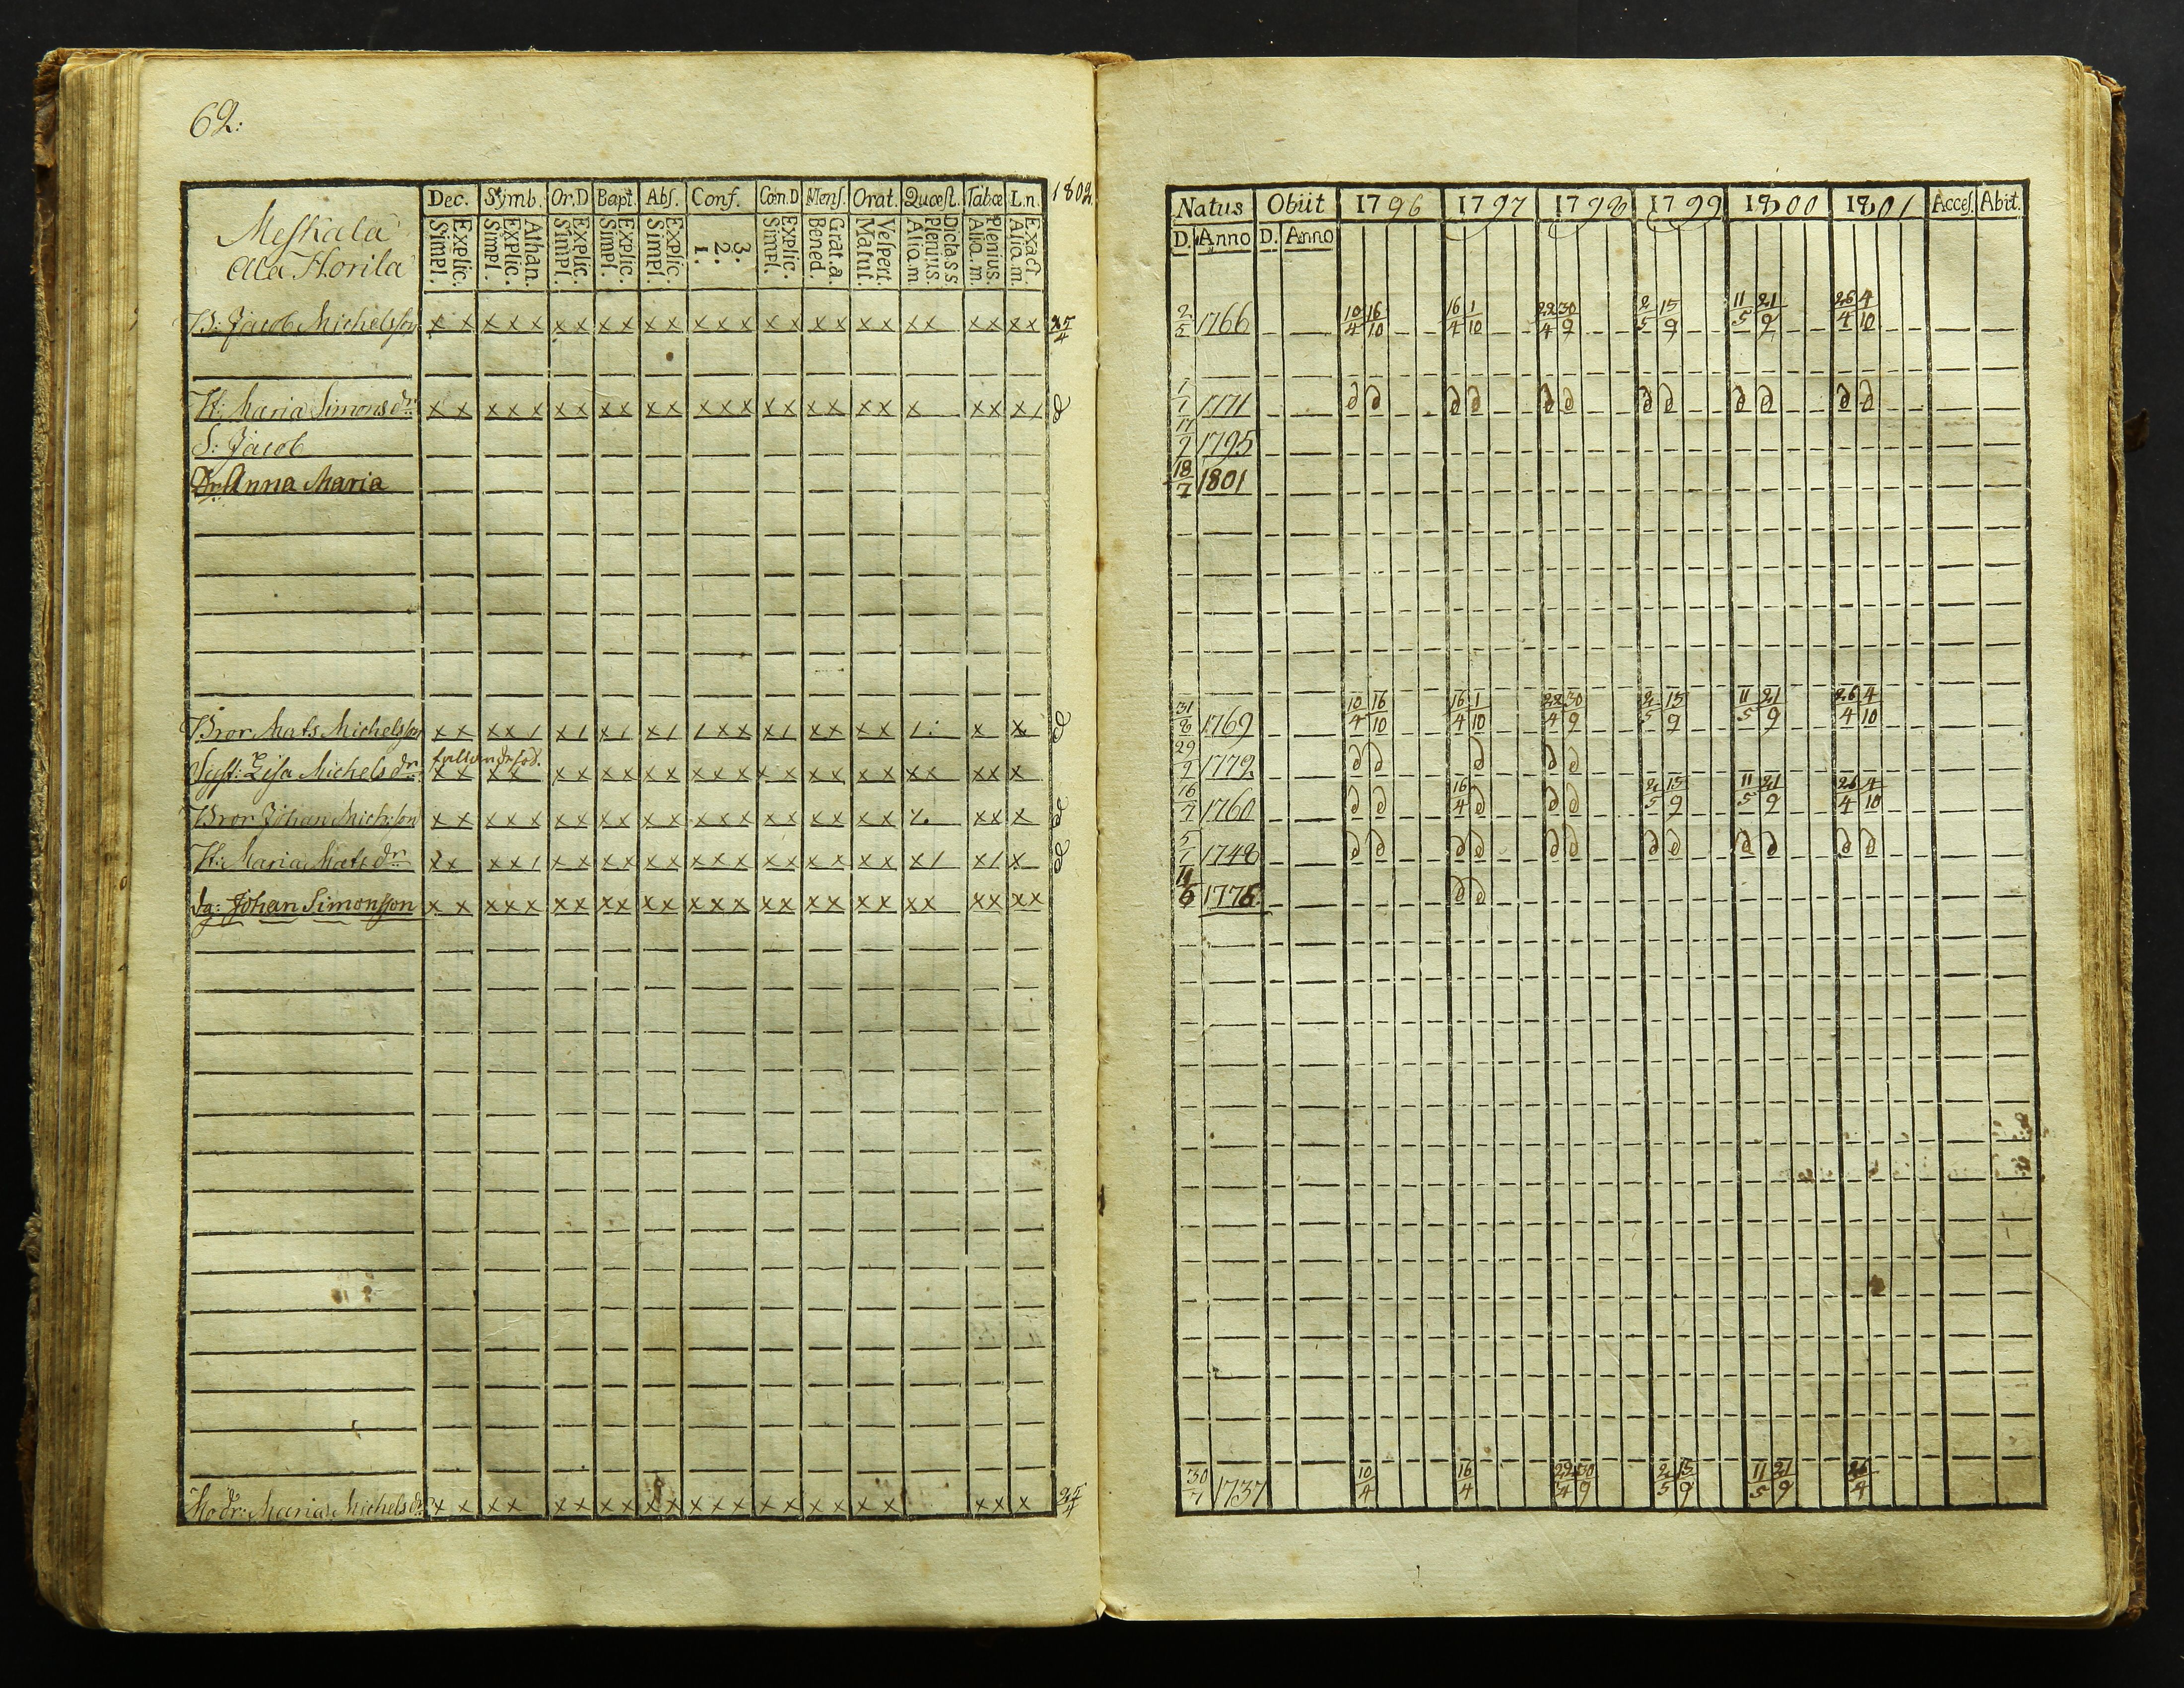 62:
Dec. Symb. Or.D Bapt. Abs. Conf. Cœn.D Mens. Orat. Quæst. Tabœ L.n. 1802
Meskala
Simpl. Explic. Simpl. Explic. Athan. Simpl. Explic. Simpl. Explic. Simpl. Explic. 1. 2. 3. Simpl. Explic. Bened. Grat.a. Matut. Vespert. Aliq.m Plenius. Dict.a s s Aliq.m. Plenius. Aliq.m. Exact
B: Jacob Michelsson x x x x x x x x x x x x x x x x x x x x x x x x x x x 25/4
H: Maria Simonsdr x x x x x x x x x x x x x x x x x x x x x x x x x / ∂
S: Jacob
Dr: Anna Maria
Bror Mats Michelsson x x x x / x / x / x / / x x x / x x x x /: x x
Syst: Lisa Michelsdr x x x x x x x x x x x x x x x x x x x x x x x x x
Bror Johan Mich:son x x x x x x x x x x x x x x x x x x x x x x x x
H: Maria Matsdr x x x x / x x x x x x x x x x x x x x x x / x / x
dg: Johan Simonsson x x x x x x x x x x x x x x x x x x x x x x x x x x
Modr: Maria Michelsdr x x x x x x x x x x x x x x x x x x x x x x x 25/4
Natus Obiit 1796 1797 1798 1799 1800 1801 Acces. Abit.
D. Anno D. Anno
2/5 1766 10/4 16/10 16/4 1/10 22/4 30/9 2/5 15/9 11/5 21/9 26/4 4/10
1771 ∂ ∂ ∂ ∂ ∂ ∂ ∂ ∂ ∂ ∂ ∂ ∂
17/9 1795
18/7 1801
31/8 1769 10/4 16/10 16/4 1/10 22/4 30/9 2/5 15/9 11/5 21/9 26/4 4/10
29/9 1779 ∂ ∂ ∂ ∂ ∂
1760 ∂ ∂ 16/4 ∂ ∂ ∂ 2/5 15/9 11/5 21/9 26/4 4/10
1748 ∂ ∂ ∂ ∂ ∂ ∂ ∂ ∂ ∂ ∂ ∂ ∂
11/6 1776 ∂ ∂
30/7 1737 10/4 16/4 22/4 30/9 2/5 15/9 11/5 21/9 26/4